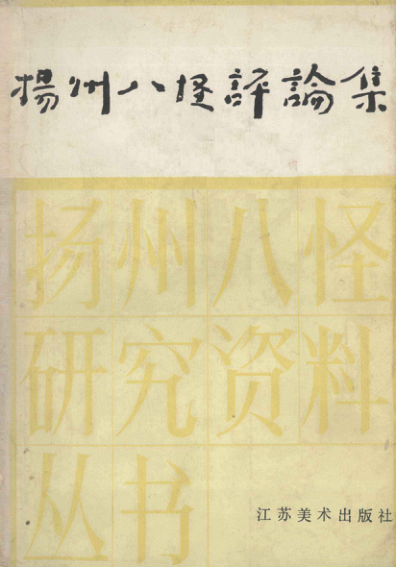 揚州八怪評論集
扬州八怪
研究资料
丛书
江苏美术出版社